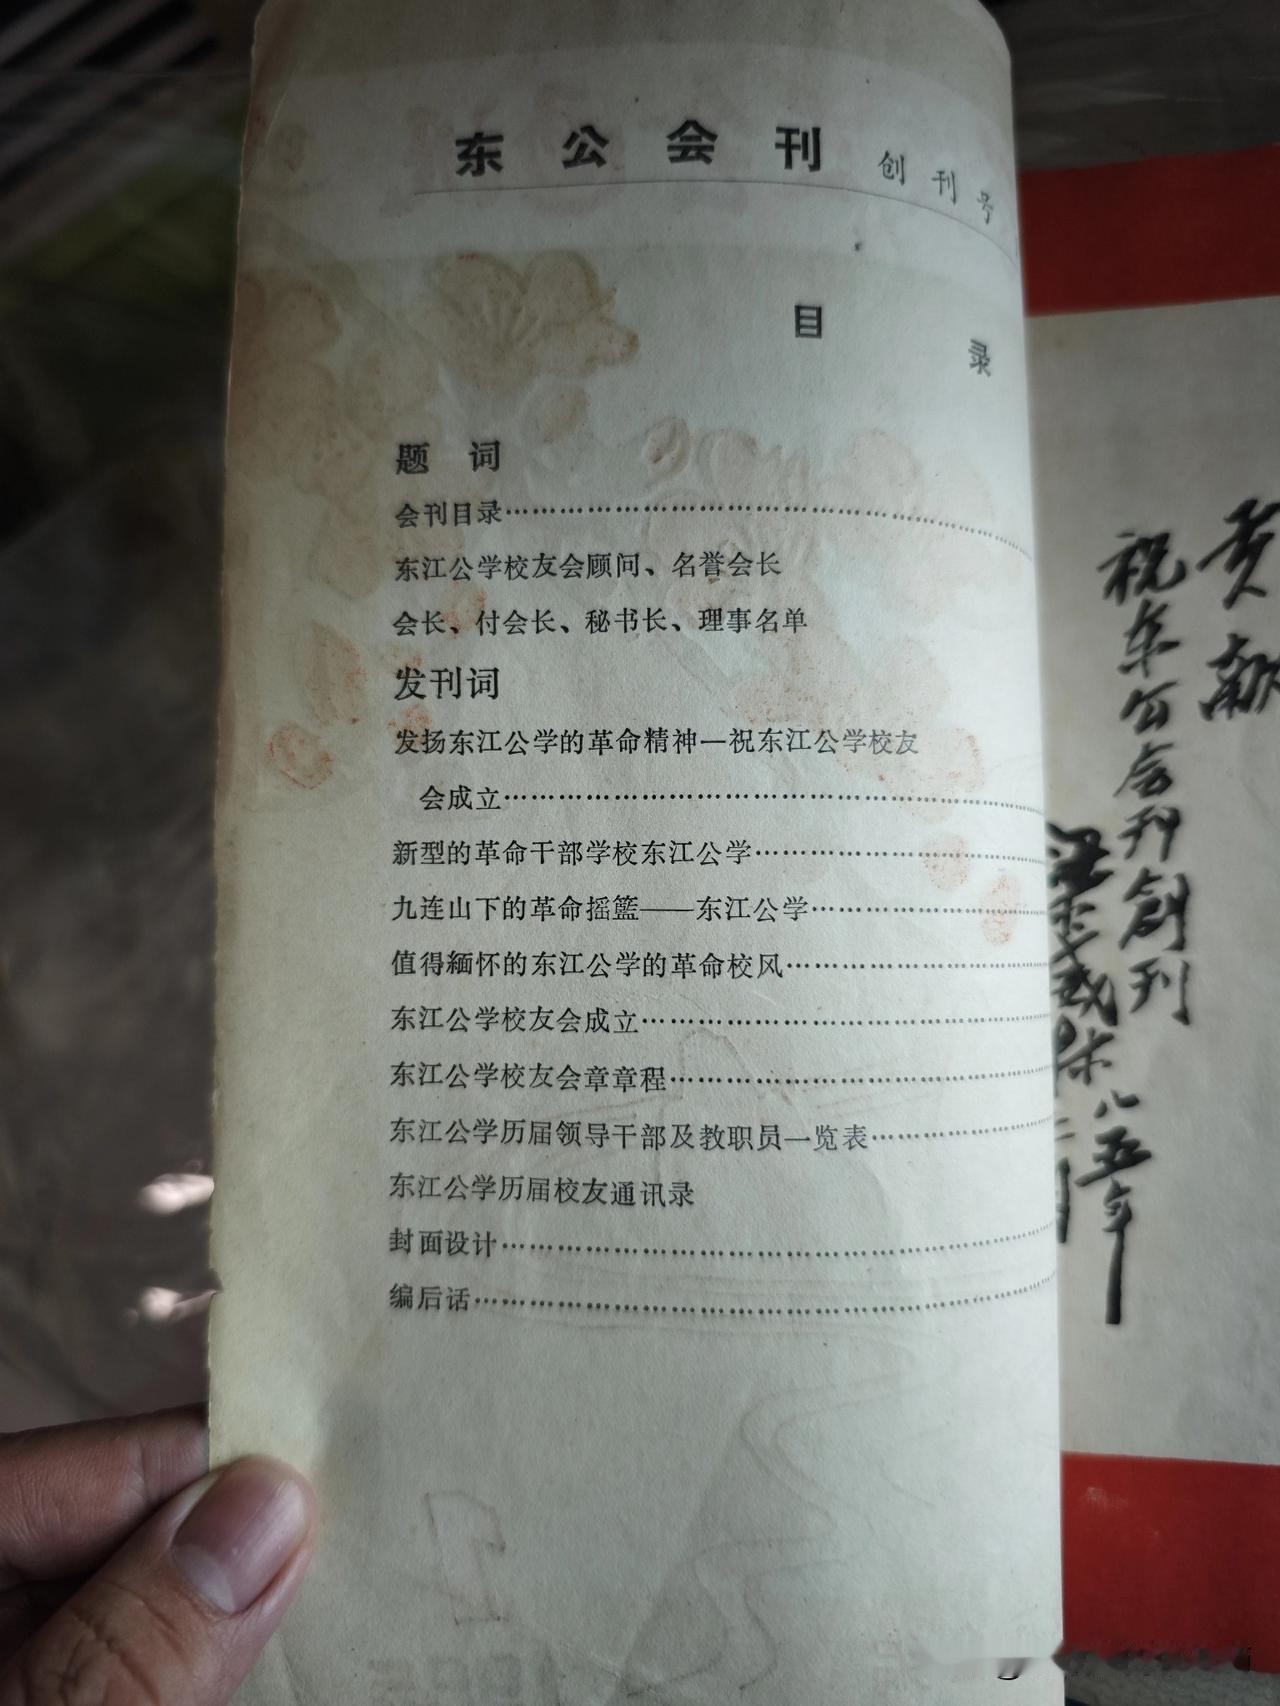 东公会刊 创刊号
目录
题词
会刊目录……………………………………
东江公学校友会顾问、名誉会长
会长、付会长、秘书长、理事名单
发刊词
发扬东江公学的革命精神—祝东江公学校友
会成立……………………………………
新型的革命干部学校东江公学……………………
九连山下的革命摇籃——东江公学…………………
值得緬怀的东江公学的革命校风……………………
东江公学校友会成立……………………………
东江公学校友会章章程…………………………
东江公学历届领导干部及教职员一览表………………
东江公学历届校友通讯录
封面设计……………………………………
编后话………………………………………
贡献
祝东公会刊創刊
梁威林 八五年